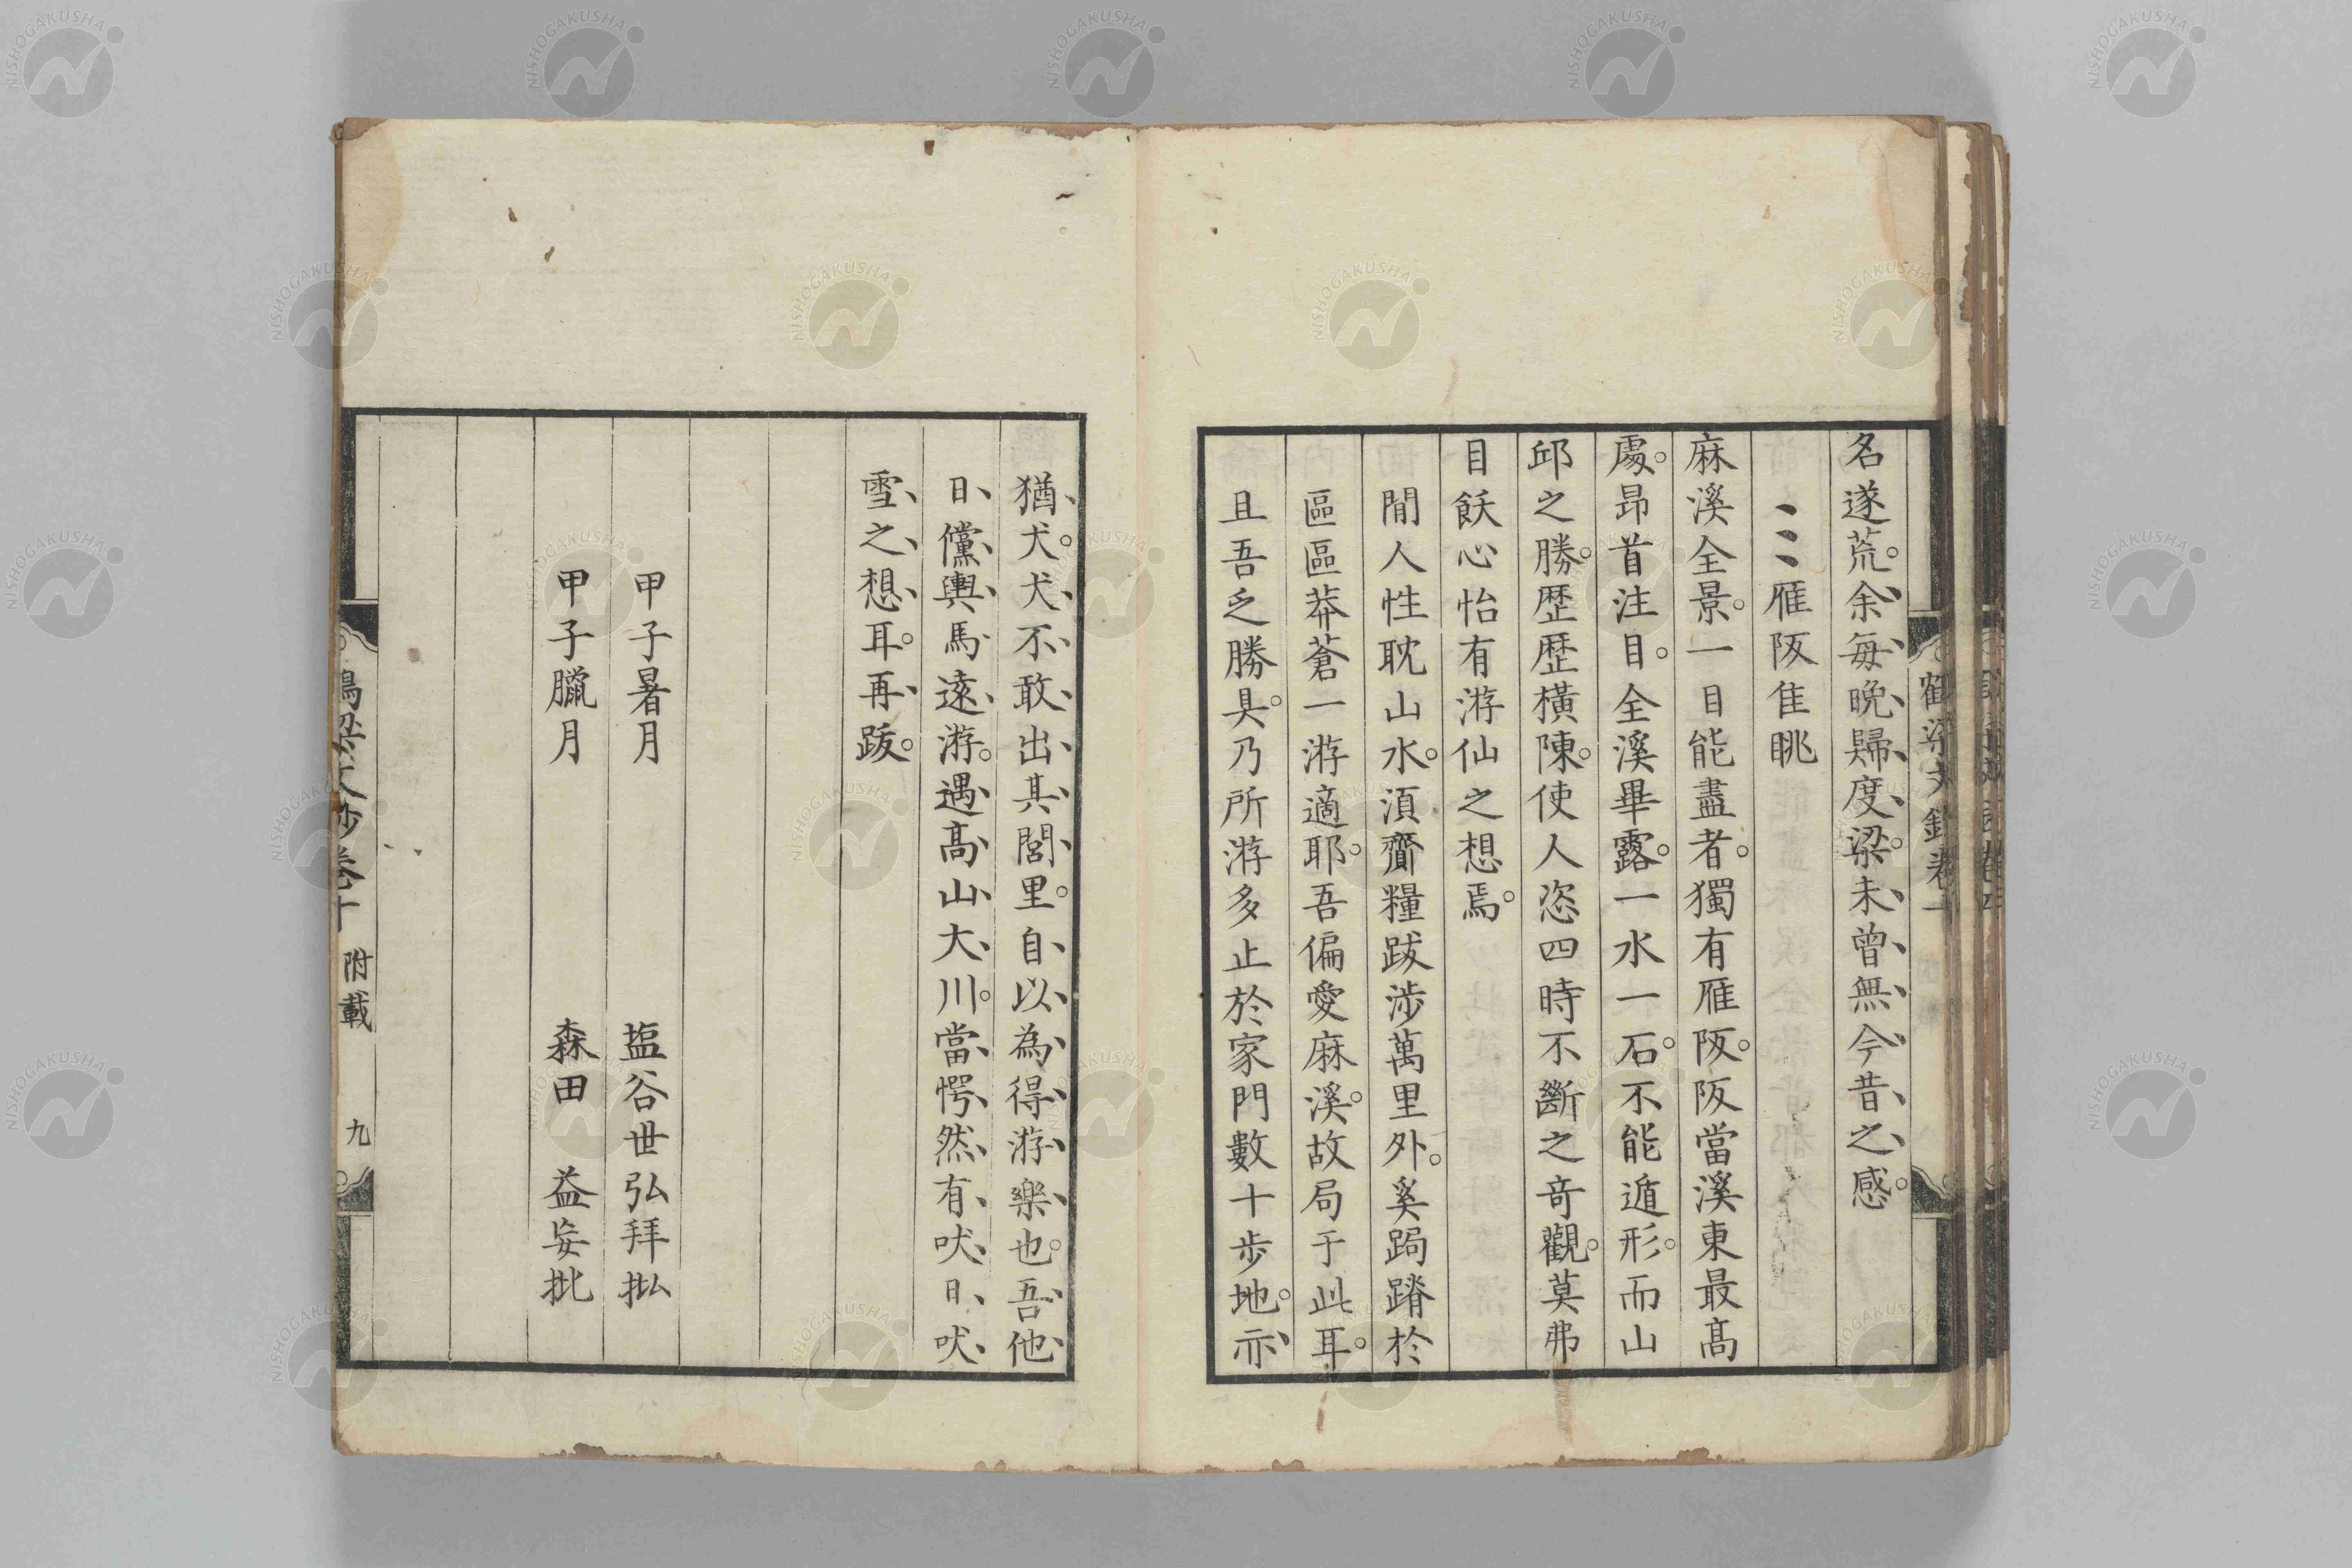 名遂荒。余每晩歸度梁。未曾無今昔之感。
雁阪隹眺
麻溪全景。一目能盡者。獨有雁阪。阪當溪東最高
處。昻首注目。全溪畢露。一水一石。不能遁形。而山
邱之勝。歴歴橫陳。使人恣四時不斷之奇觀。莫弗
目飫心怡有游仙之想焉。
間人性耽山水。湏齎糧跋涉萬里外。奚跼蹐於
區區莽蒼一游適耶。吾偏愛麻溪。故局于此耳。
且吾乏勝具。乃所游多止於家門數十步地。亦
猶犬。犬不敢出其閭里。自以為得游樂也。吾他
日儻輿馬遠游。遇髙山大川。當愕然有吠日吠
雪之想耳。再跋。
甲子暑月 塩谷世弘拜批
甲子臘月 森田 益妄批
附載 九
NISHOGAKUSHA